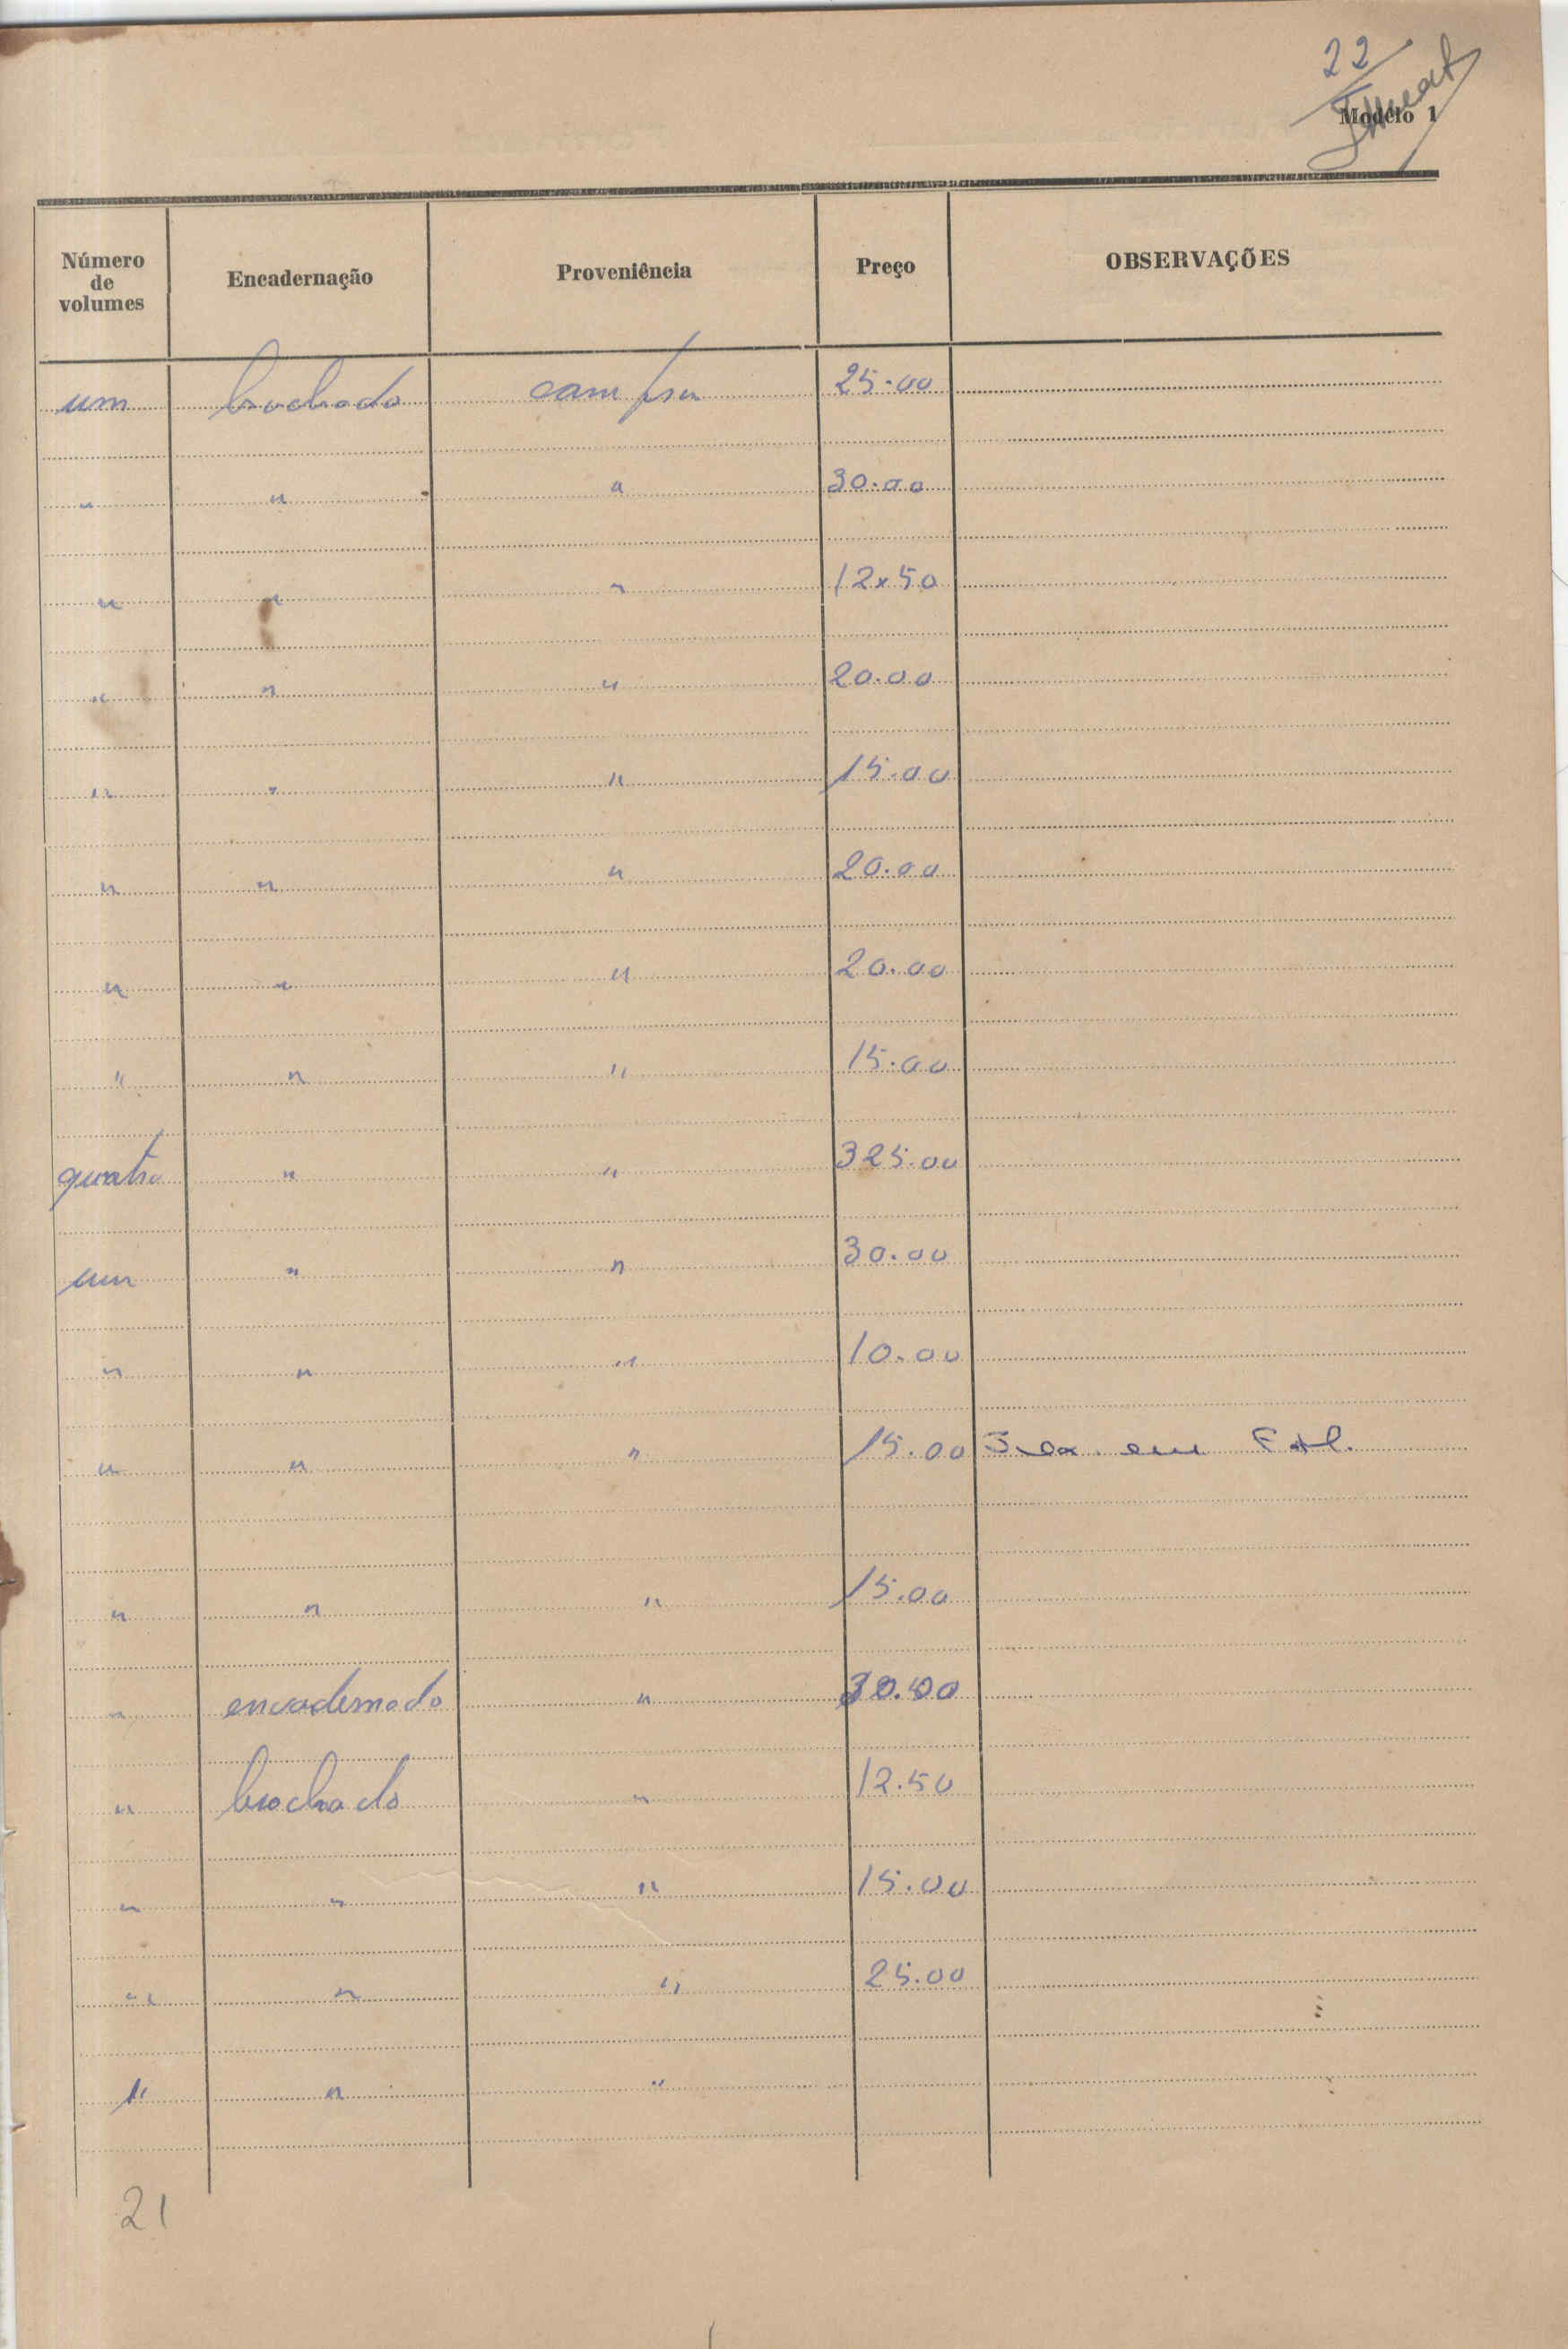 22
Modêlo 1
Número de volumes Encadernação Proveniência Preço OBSERVAÇÕES
um brochado compra 25.00
" " " 30.00
" " " 12x50
" " " 20.00
" " " 15.00
" " " 20.00
" " " 20.00
" " " 15.00
quatro " " 325.00
um " " 30.00
" " " 10.00
" " " 15.00 em
" " " 15.00
" encadernado " 30.00
" brochado " 12.50
" " " 15.00
" " " 25.00
" " "
21